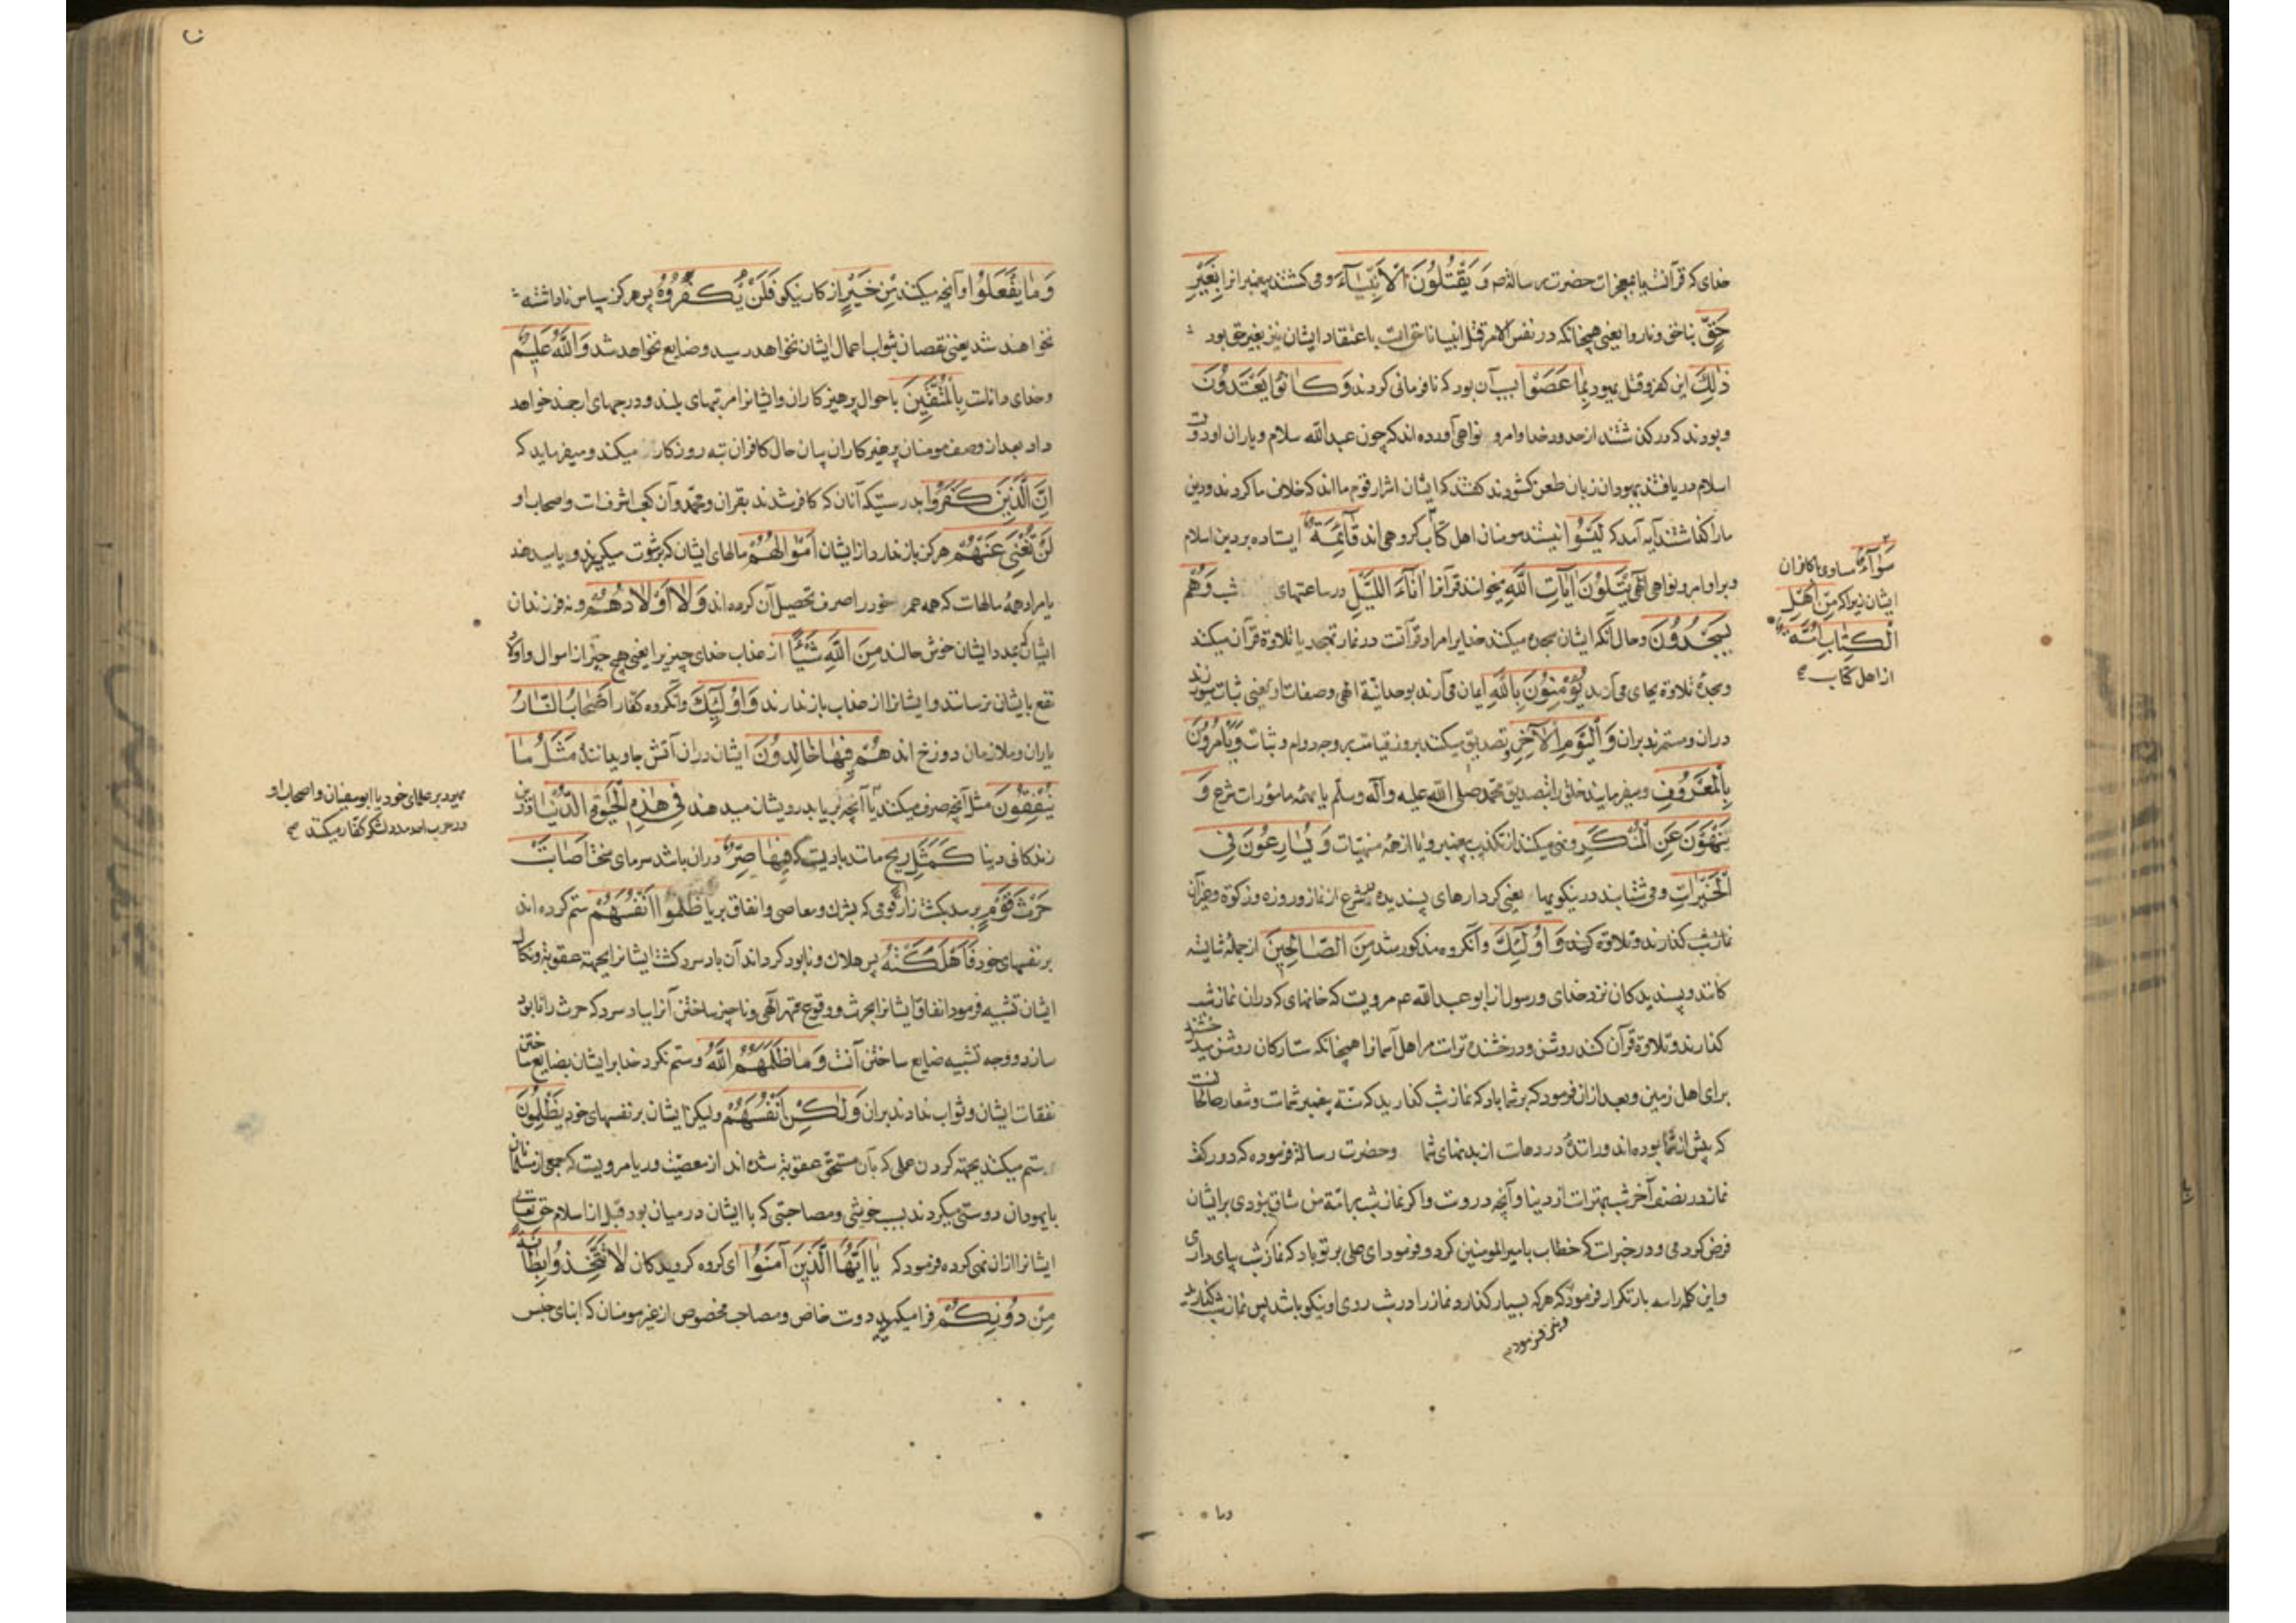 خدای که قرآنست یا بمعجزات حضرت رسالة صم وَ يَقْتُلُونَ الْاَنْبِيٰآءَ و می کشتند پیغمبرانرا بِغَيْرِ
حَقٍّ بناحق و ناروا یعنی همچنانکه در نفس الامر قتل انبیا ناحق است باعتقاد ایشان نیز بغیر حق بود
ذٰلِكَ این کفر و قتل یهود بِمٰا عَصَوْا بسبب آن بود که نافرمانی کردند وَ كٰانُوا يَعْتَدُونَ
و بودند که در گذشتند از حدود خدا و امر و نواهی آورده اند که چون عبدالله سلام و یاران او دولت
اسلام دریافتند یهودان زبان طعن گشودند گفتند که ایشان اشرار قوم ما اند که خلاف ما کردند و دین
ما را گذاشتند آیه آمد که لَيْسُوا نیستند مومنان اهل کتاب گروهی اند قٰآئِمَةٌ ایستاده بر دین اسلام
و بر اوامر و نواهی الهی يَتْلُونَ اٰيٰاتِ اللّٰهِ میخوانند قرآنرا اٰنٰآءَ اللَّيْلِ در ساعتهای شب وَهُمْ
يَسْجُدُونَ و حال آنکه ایشان سجده میکنند خدایرا مراد قرآنست در نماز تهجد یا تلاوة قرآن میکنند
و سجدهٔ تلاوة بجای می آرند يُؤْمِنُونَ بِاللّٰهِ ایمان می آرند بوحدانیة الهی و صفات او یعنی ثبات میورزند
در ان و مستمرند بران وَ الْيَوْمِ الْاٰخِرِ و تصدیق میکنند بروز قیامت بر وجه دوام و ثبات وَيَأْمُرُونَ
بِالْمَعْرُوفِ و میفرمایند خلق را بتصدیق محمد صلی الله علیه و آله وسلم یا بهمه مامورات شرع وَ
يَنْهَوْنَ عَنِ الْمُنْكَرِ و نهی میکنند از تکذیب پیغمبر و یا از همهٔ منهیات وَ يُسٰارِعُونَ فِي
الْخَيْرٰاتِ و می شتابند در نیکوییها یعنی کردارهای پسندیده شرع از نماز و روزه و زکوة و غیر آن
نماز شب گذارند و تلاوة کنند وَ اُولٰئِكَ و آنگروه مذکور شد مِنَ الصّٰالِحِينَ از جمله شایسته
کانند و پسندیدکان نزد خدای و رسول از ابو عبدالله عم مرویست که خانهای که دران نماز شب
گذارند و تلاوة قرآن کنند روشن و درخشنده تر است مر اهل آسمانرا همچنانکه ستارکان روشن میدرخشند
برای اهل زمین و بعد ازان فرمود که بر شما باد که نماز شب گذارید که سنّة پیغمبر شماست و شعار صالحانست
که پیش از شما بوده اند و رانندهٔ درد هاست از بدنهای شما و حضرت رسالة فرموده که دو رکعت
نماز در نصف آخر شب بهتر است از دنیا و آنچه در وست و اگر نماز شب بر امّة من شاق نبودی بر ایشان
فرض کردمی و در خبر است که خطاب بامیر المومنین کرد و فرمود ای علی بر تو باد که نماز شب بپای داری
و این کلمه را سه بار تکرار فرمود که هر که بسیار گذارد نماز را در شب روی او نیکو باشد پس نماز شب گذارید
و نیز فرموده
وما
سَوٰآءً مساوی با کافران
ایشان زیرا که مِنْ اَهْلِ
الْكِتٰابِ اُمَّةٌ
از اهل کتاب صح
وَمٰا يَفْعَلُوْا و آنچه میکنند مِنْ خَيْرٍ از کار نیکی فَلَنْ يُكْفَرُوْهُ پس هرگز سپاس ناداشته
نخواهند شد یعنی نقصان بثواب اعمال ایشان نخواهد رسید و ضایع نخواهد شد وَاللّٰهُ عَلِيمٌ
و خدای داناست بِالْمُتَّقِينَ باحوال پرهیزکاران و ایشانرا مرتبهای بلند و درجهای ارجمند خواهد
داد بعد از وصف مومنان پرهیزکاران بیان حال کافران تبه روزگار میکند و میفرماید که
اِنَّ الَّذِينَ كَفَرُوا بدرستیکه آنان که کافر شدند بقران و محمد و آن کعب اشرفست و اصحاب او
لَنْ تُغْنِيَ عَنْهُمْ هرگز باز ندارد از ایشان اَمْوٰالُهُمْ مالهای ایشان که برشوت میگیرند و یا میدهند
یا مراد همهٔ مالهاست که همه عمر خود را صرف تحصیل آن کرده اند وَلٰا اَوْلٰادُهُمْ و نه فرزندان
ایشان که بمدد ایشان خوش حالند مِنَ اللّٰهِ شَيْئًا از عذاب خدای چیزیرا یعنی هیچ چیز از اموال و اولاد
نفع بایشان نرسانند و ایشانرا از عذاب باز ندارند وَ اُولٰئِكَ و آنگروه کفار اَصْحٰابُ النّٰارِ
یاران و ملازمان دوزخ اند هُمْ فِيهٰا خٰالِدُونَ ایشان دران آتش جاوید مانند مَثَلُ مٰا
يُنْفِقُونَ مثل آنچه صرف میکنند یا آنچه بریا بدرویشان میدهند فِي هٰذِهِ الْحَيٰوةِ الدُّنْيٰا درین
زندکانی دنیا كَمَثَلِ رِيحٍ مانند بادیست که فِيهٰا صِرٌّ دران باشد سرمای سخت اَصٰابَتْ
حَرْثَ قَوْمٍ برسد بکشت زار قومی که بشرک و معاصی و انفاق بریا ظَلَمُوا اَنْفُسَهُمْ ستم کرده اند
بر نفسهای خود فَاَهْلَكَتْهُ پس هلاک و نابود کرداند آن باد سرد کشت ایشانرا بجهة عقوبة و نکال
ایشان تشبیه فرمود انفاق ایشانرا بحرث و وقوع قهر الهی و ناچیز ساختن آنرا بباد سرد که حرث را نابود
سازد و وجه تشبیه ضایع ساختن آنست وَ مٰا ظَلَمَهُمُ اللّٰهُ و ستم نکرد خدا بر ایشان بضایع ساختن
نفقات ایشان و ثواب ندادند بران وَ لٰكِنْ اَنْفُسَهُمْ ولیکن ایشان بر نفسهای خود يَظْلِمُونَ
ستم میکنند بجهة کردن عملی که بآن مستحق عقوبة شده اند از معصیت و ریا مرویست که جمعی از مسلمانان
با یهودان دوستی میکردند بسبب خویشی و مصاحبتی که با ایشان در میان بود قبل از اسلام حق تعالی
ایشانرا ازان نهی کرده فرمود که يٰا اَيُّهَا الَّذِينَ اٰمَنُوا ای گروه گرویدکان لٰا تَتَّخِذُوا بِطٰانَةً
مِنْ دُونِكُمْ فرا میگیرید دوست خاص و مصاحب مخصوص از غیر مومنان که ابنای جنس
یهود بر علمای خود یا ابوسفیان و اصحاب او
در حرب احد مدد لشکر کفار میکنند صح